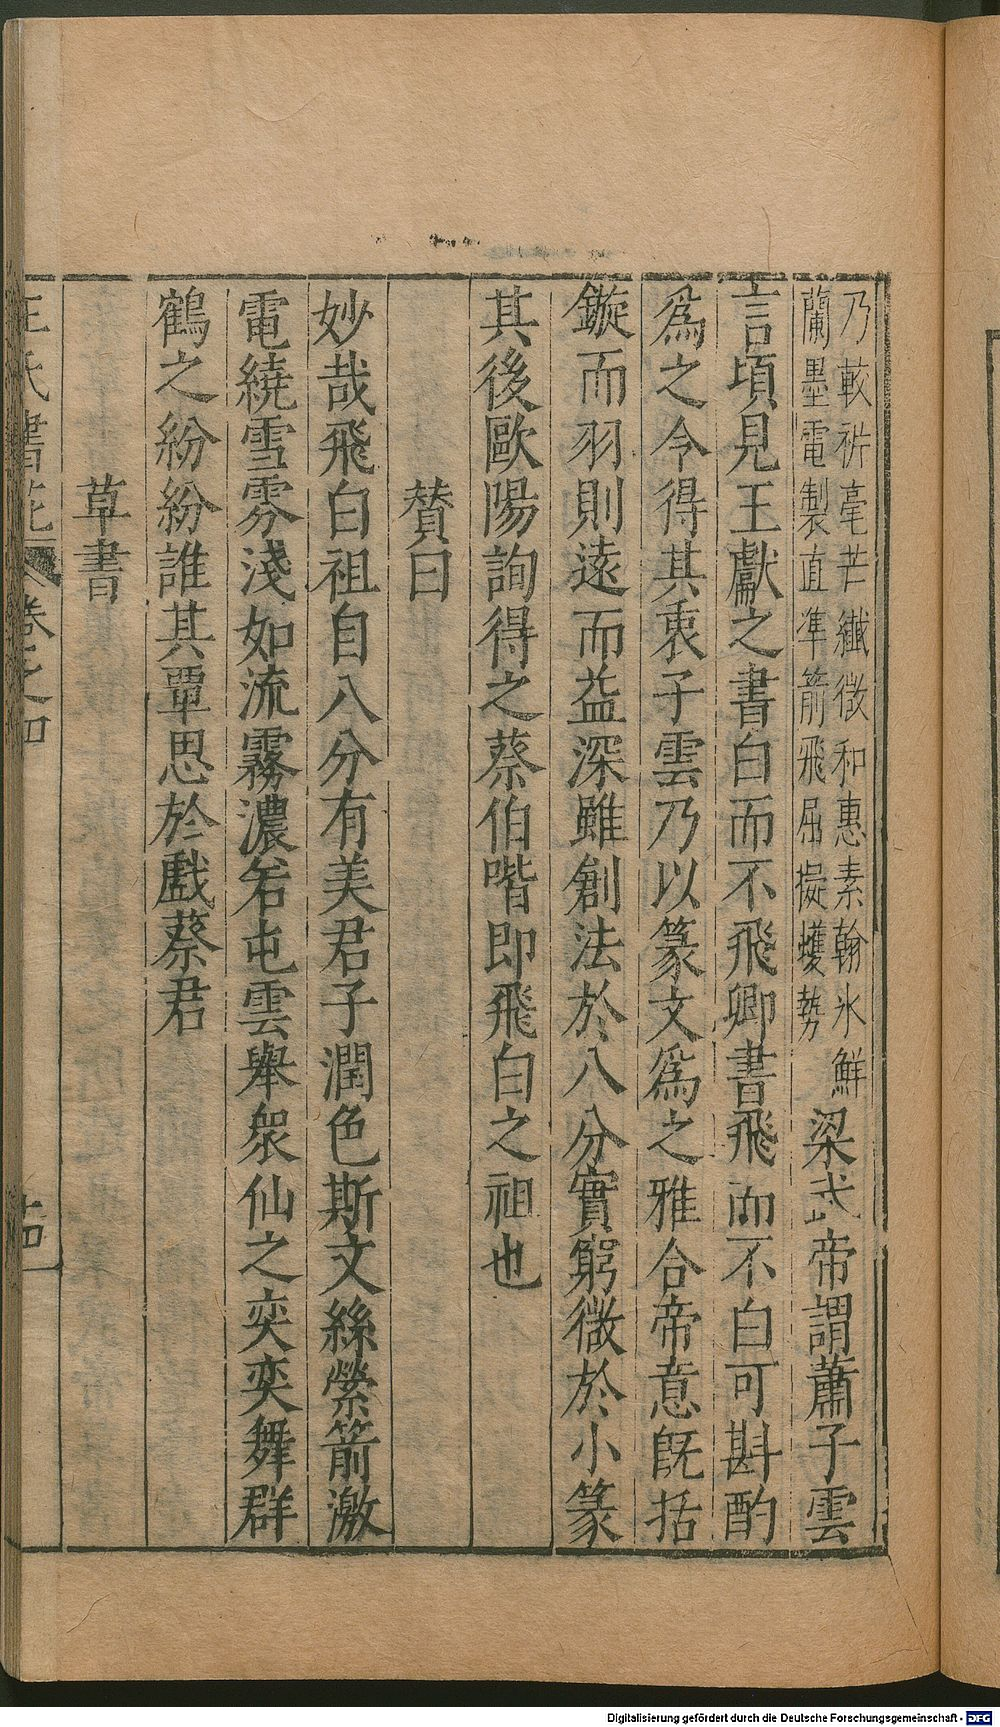 乃較析毫芒纖微和惠素翰氷鮮
蘭墨電製直準箭飛屈擬蠖勢
梁武帝謂蕭子雲
言頃見王獻之書白而不飛卿書飛而不白可斟酌
爲之令得其衷子雲乃以篆文爲之雅合帝意旣括
鏇而羽則遠而益深雖創法於八分實窮微於小篆
其後歐陽詢得之蔡伯喈即飛白之祖也
賛曰
妙哉飛白祖自八分有美君子潤色斯文絲縈箭激
電繞雪雰淺如流霧濃若屯雲舉衆仙之奕奕舞群
鶴之紛紛誰其覃思於戲蔡君
草書
王氏書苑
卷之四
Digitalisierung gefördert durch die Deutsche Forschungsgemeinschaft - DFG